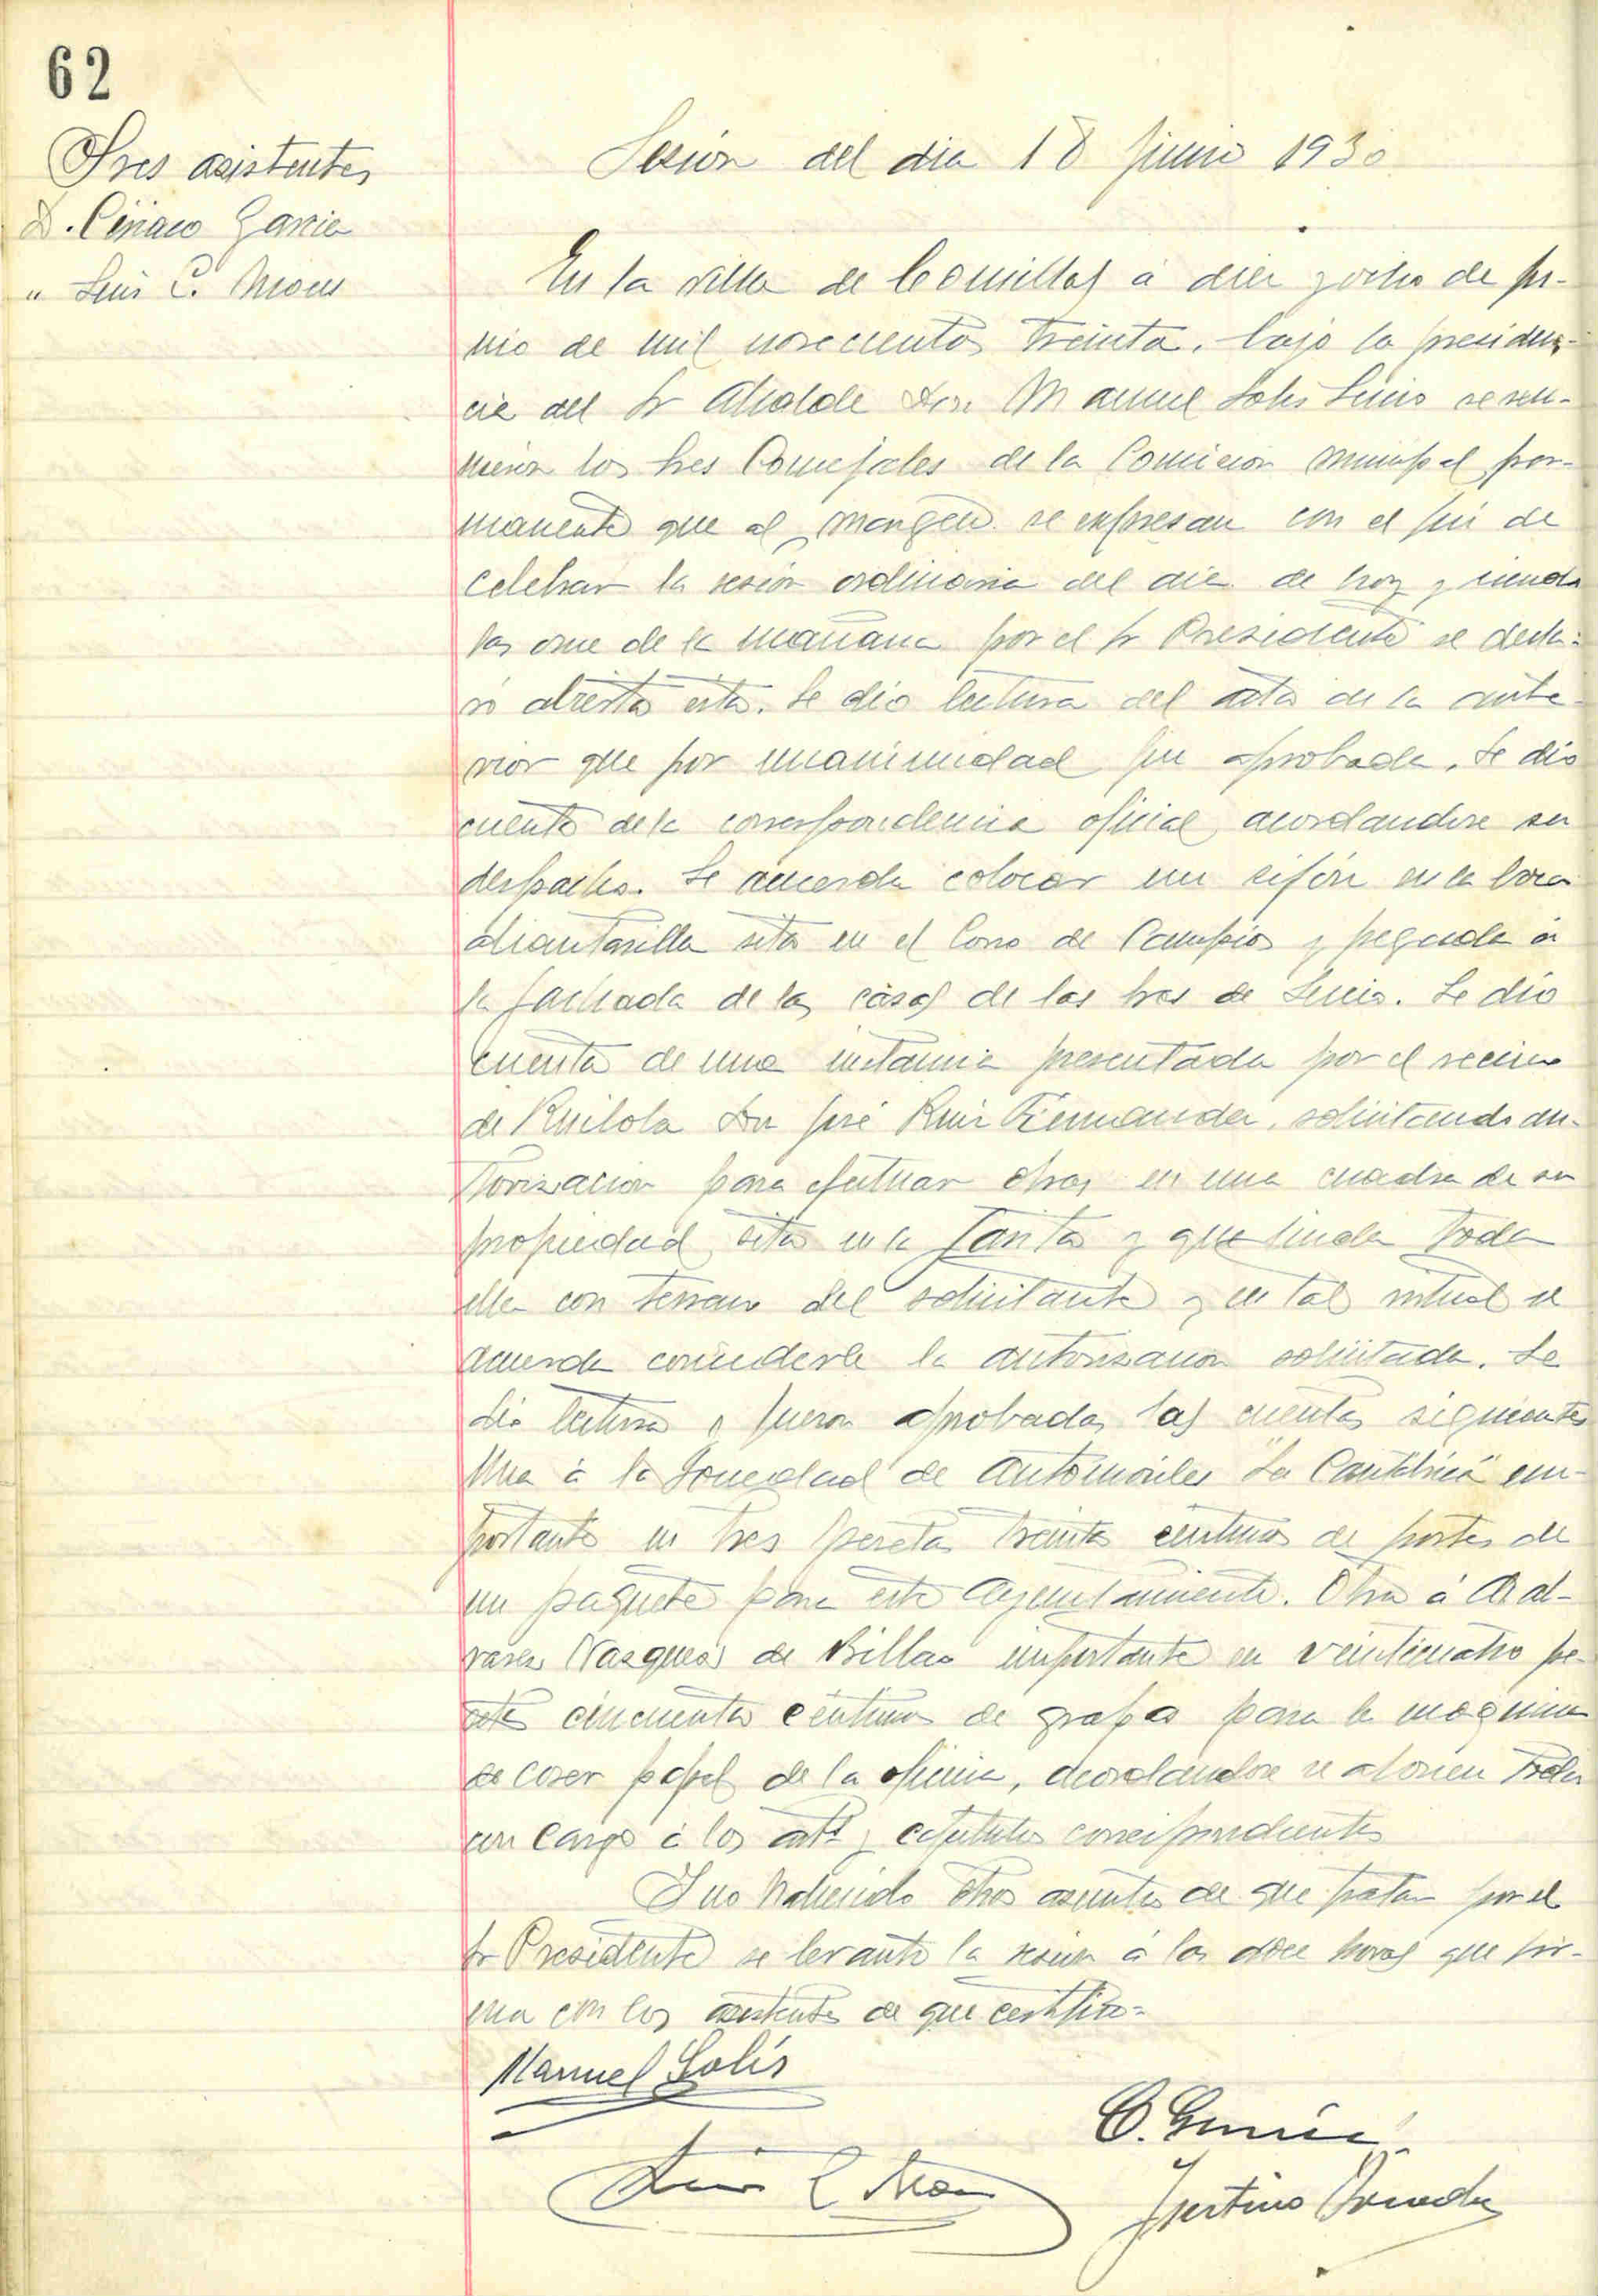 62
Sres asistentes
D. Ciriaco Garcia
" Luis C. Mones
Sesion del dia 18 Junio 1930
En la villa de Comillas á diez y ocho de ju-
nio de mil novecientos treinta, bajo la presiden-
cia del Sr Alcalde Don Manuel Solis Lucio se reu-
nieron los tres Concejales de la Comision municipal per-
manente que al margen se expresan con el fin de
celebrar la sesion ordinaria del dia de hoy y siendo
las once de la mañana por el Sr Presidente se decla-
ró abierta esta. Se dió lectura del acta de la ante-
rior que por unanimidad fue aprobada. Se dió
cuenta de la correspondencia oficial acordandose su
despacho. Se acuerda colocar un sifón en la boca
alcantarilla sita en el Corro de Campios y pegada á
la fachada de las casas de los hros de Lucio. Se dió
cuenta de una instancia presentada por el vecino
de Ruiloba Don José Ruiz Fernandez, solicitando au-
torización para efectuar obras en una cuadra de su
propiedad sita en la y que linda toda
ella con terreno del solicitante y en tal virtud se
acuerda concederle la autorización solicitada. Se
dió lectura y fueron aprobadas las cuentas siguientes
Una á la Sociedad de Automóviles "La Cantábrica" im-
portante en tres pesetas treinta centimos de portes de
un paquete para este Ayuntamiento. Otra á
de Bilbao importante en veinticuatro pe-
setas cincuenta centimos de grapas para la maquina
de coser papel de la oficina, acordándose se abonen todas
con cargo á los artº y capitulos correspondientes
Y no habiendo otros asuntos de que tratar por el
Sr Presidente se levantó la sesion á las doce horas que fir-
ma con los asistentes de que certifico=
Manuel Solís
C. Garcia
Luis C Mones